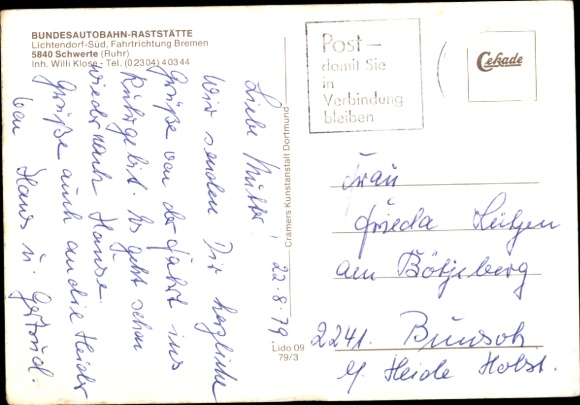 BUNDESAUTOBAHN-RASTSTÄTTE
Lichtendorf-Süd, Fahrtrichtung Bremen
5840 Schwerte (Ruhr)
Inh. Willi Klose · Tel. (02304) 40344
22.8.79
Liebe Mutter!
Wir senden Dir herzliche
Grüße von der Fahrt ins
Ruhrgebiet. Es geht schon
wieder nach Hause.
Grüße auch an die Heider
von Hans u. Gertrud.
Cramers Kunstanstalt Dortmund
Lido 09
79/3
Post –
damit Sie
in
Verbindung
bleiben
Cekade
Frau
Frieda
am Bötjeberg
2241. Bunsoh
b/ Heide Holst.